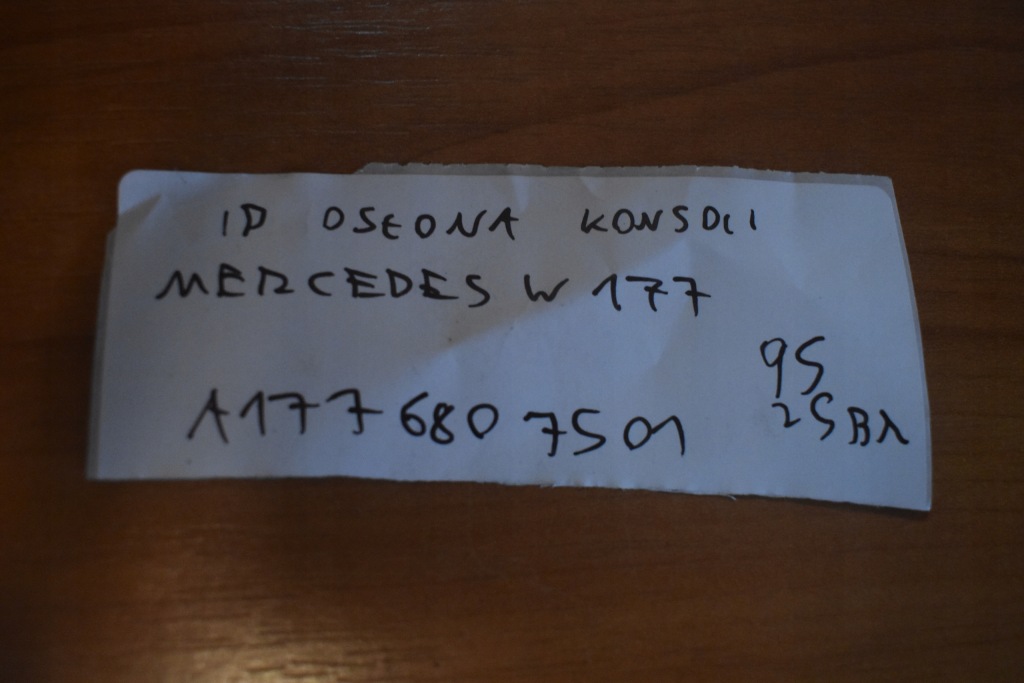 IP OSŁONA KONSOLI
MERCEDES W 177
A177 680 7501
95
25BA